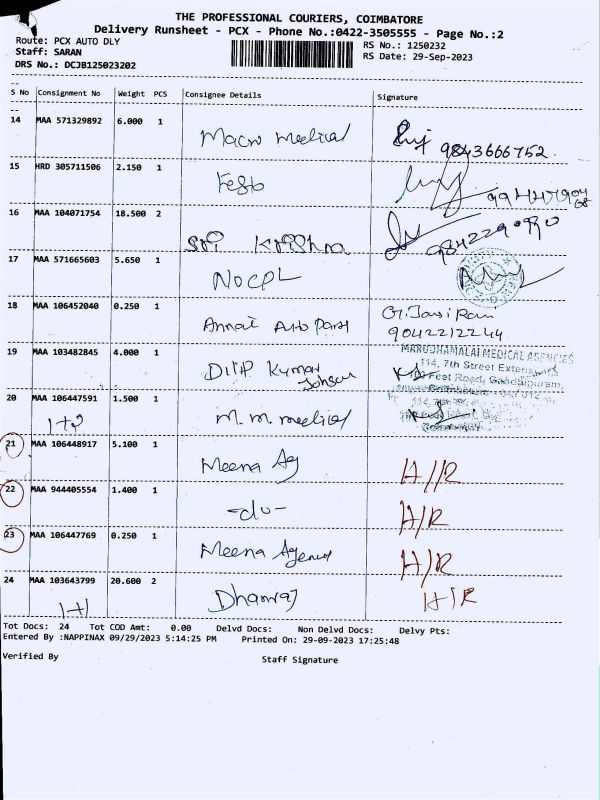 THE PROFESSIONAL COURIERS, COIMBATORE
Delivery Runsheet - PCX - Phone No.:0422-3505555 - Page No.:2
Route: PCX AUTO DLY RS No.: 1250232
Staff: SARAN RS Date: 29-Sep-2023
DRS No.: DCJB125023202
S No Consignment No Weight PCS Consignee Details Signature
14 MAA 571329892 6.000 1
Macro Medical 9843666752
15 HRD 305711506 2.150 1
Festo
16 MAA 104071754 18.500 2
Sri Krishna
17 MAA 571665603 5.650 1
NOCPL
18 MAA 106452040 0.250 1 G. Jansi Rani
Annai Auto Parts 9042212244
19 MAA 103482845 4.000 1 MARUDHAMALAI MEDICAL AGENCIES
Dilip Kumar 114, 7th Street Extension
Feet Road, Gandhipuram,
20 MAA 106447591 1.500 1
1+2 M.M. medical
21 MAA 106448917 5.100 1
Meena Ag H/R
22 MAA 944405554 1.400 1
-do- H/R
23 MAA 106447769 0.250 1
Meena Agency H/R
24 MAA 103643799 20.600 2
1+1 Dhanraj H/R
Tot Docs: 24 Tot COD Amt: 0.00 Delvd Docs: Non Delvd Docs: Delvy Pts:
Entered By :NAPPINAX 09/29/2023 5:14:25 PM Printed On: 29-09-2023 17:25:48
Verified By Staff Signature